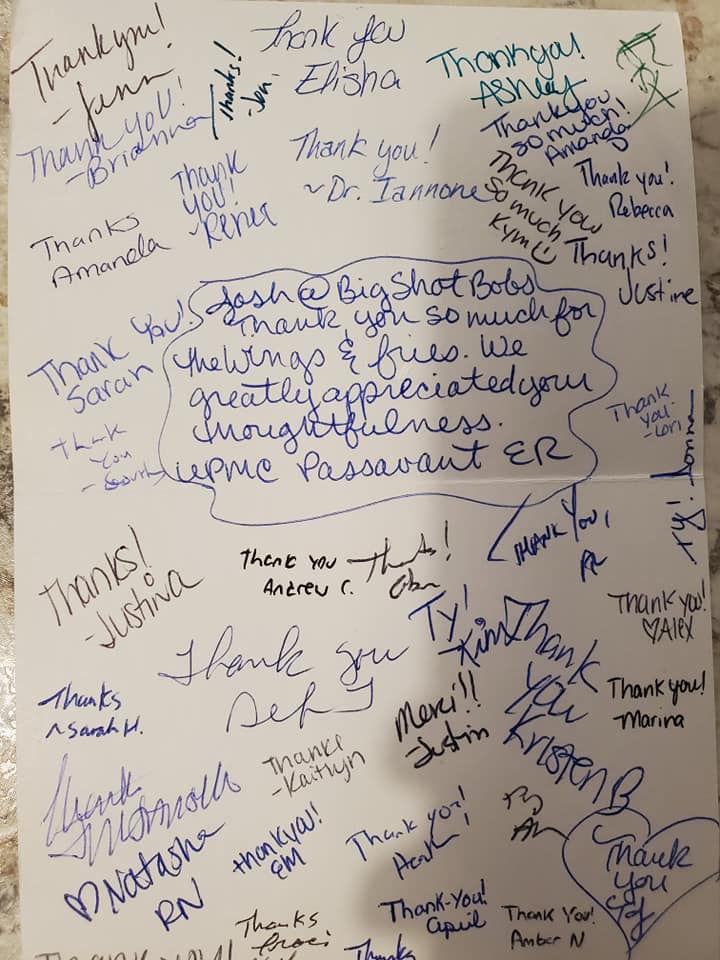 Thank you!
- Jenn
Thanks!
- Jen
Thank you
Elisha
Thankyou!
Ashley
Thank you!
- Brianna
Thank
you!
Thank you!
~ Dr. Iannone
Thank you
so much!
Amanda
Thank you
so much
Kym
Thank you!
Rebecca
Thanks
Amanda
Thanks!
Justine
Thank you!
Sarah
Josh @ BigShotBobs
Thank you so much for
the wings & fries. We
greatly appreciated your
thoughtfulness.
UPMC Passavant ER
Thank
you
- Sarah
Thank
you!
- Lori
Ty! Donna
Thanks!
- Justina
Thank you
Andrew C.
Thanks!
Thank You,
Thank you!
♡ Alex
Ty!
- Kim
Thank you
Thank
You
Kristen B
Thank you!
Marina
Thanks
~ Sarah H.
Merci!!
- Justin
Thanks
- Kaitlyn
Thank
♡ Natasha
RN
thankyou!
EM
Thank you!
Ty
Thank
you
Thank-You!
April
Thank You!
Amber N
Thanks
Thanks